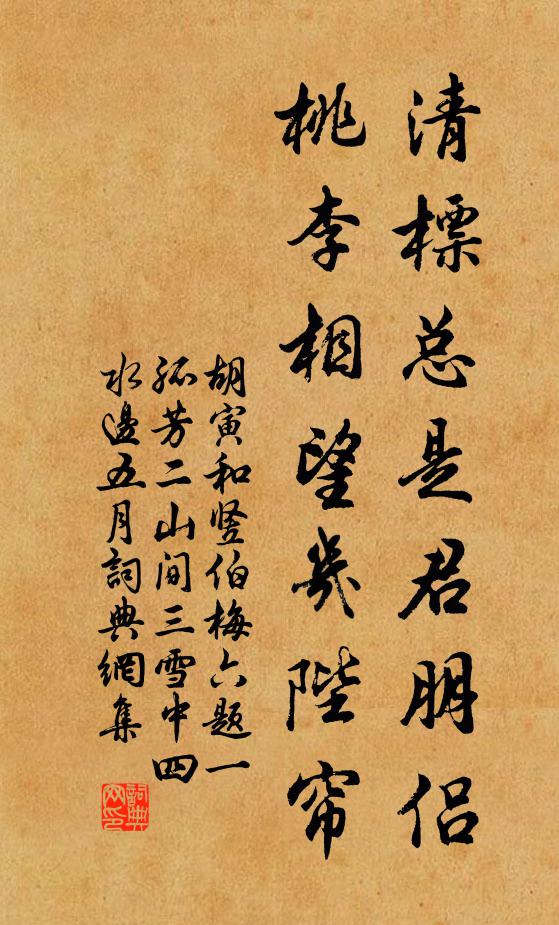 清標总是君朋侣
桃李相望幾陛帘
胡寅和竖伯梅六题一
孤芳二山间三雪中四
水邊五月詞典網集